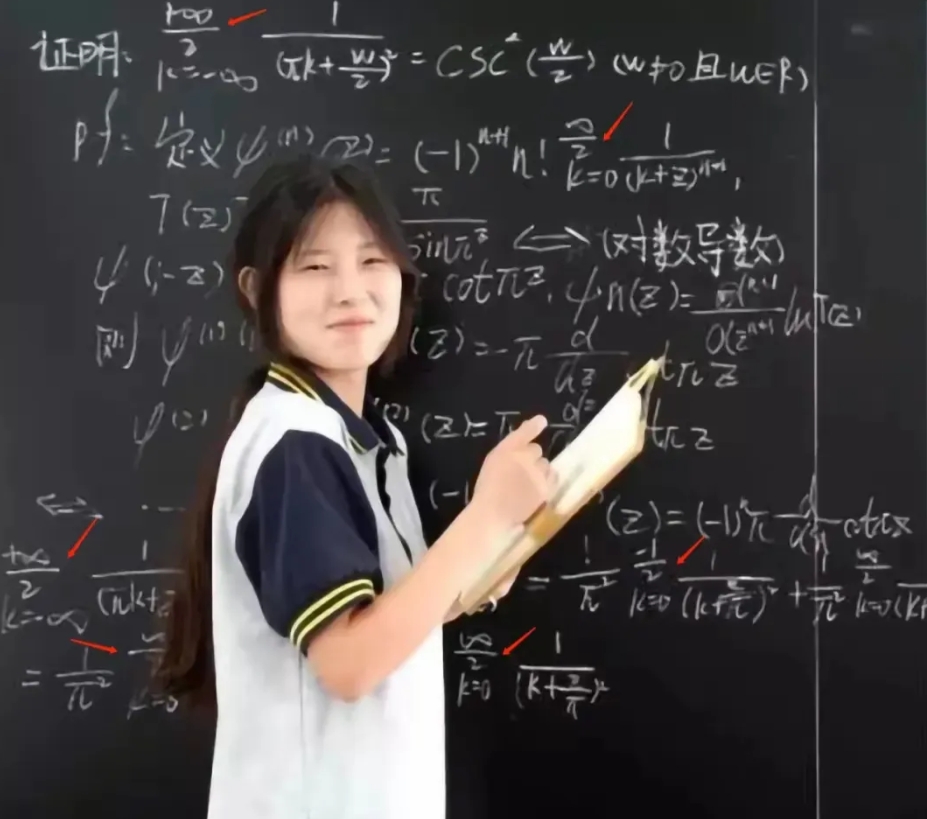 证明: +∞ 2 k=-∞ 1/(πk+w/2)² = CSC²(w/2) (w≠0且w∈R)
pf: 定义ψ⁽ⁿ⁾(z)= (-1)ⁿ⁺¹n! ∞ 2 k=0 1/(k+z)ⁿ⁺¹,
T(z) π/sinπz ⟺ (对数导数)
ψ(1-z) cotπz, ψn(z)= dⁿ⁺¹/dzⁿ⁺¹ lnT(z)
则 ψ⁽¹⁾( (z)=-π d/dz tπz
ψ⁽²⁾ ⁽²⁾(z)=π tπz
⟺ … (-1) (z)=(-1)ⁿπ
+∞ 2 k=-∞ 1/(πk+z = 1/π² -1 2 k=0 1/(k+z/π)² + 1/π² ∞ 2 k=0 (k+
= 1/π² ∞ k=0 ∞ 2 k=0 1/(k+z/π)²